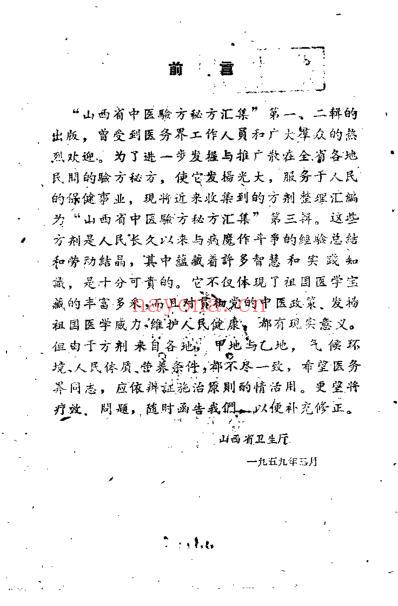 前言
“山西省中医驗方秘方汇集”第一、二輯的
出版，曾受到医务界工作人員和广大羣众的热
烈欢迎。为了进一步发掘与推广散在全省各地
民間的驗方秘方，使它发揚光大，服务于人民
的保健事业，現将近来收集到的方剂整理汇編
为“山西省中医驗方秘方汇集”第三輯。这些
方剂是人民长久以来与病魔作斗爭的經驗总結
和劳动結晶，其中蘊藏着許多智慧和实践知
識，是十分可貴的。它不仅体現了祖国医学宝
藏的丰富多采，而且对貫彻党的中医政策、发揚
祖国医学威力、維护人民健康，都有現实意义。
但由于方剂来自各地，甲地与乙地，气候环
境、人民体质、营养条件，都不尽一致，希望医务
界同志，应依辩証施治原則酌情活用。更望将
疗效、問題，随时函告我們，以便补充修正。
山西省卫生厅
一九五九年三月
nayona.cn